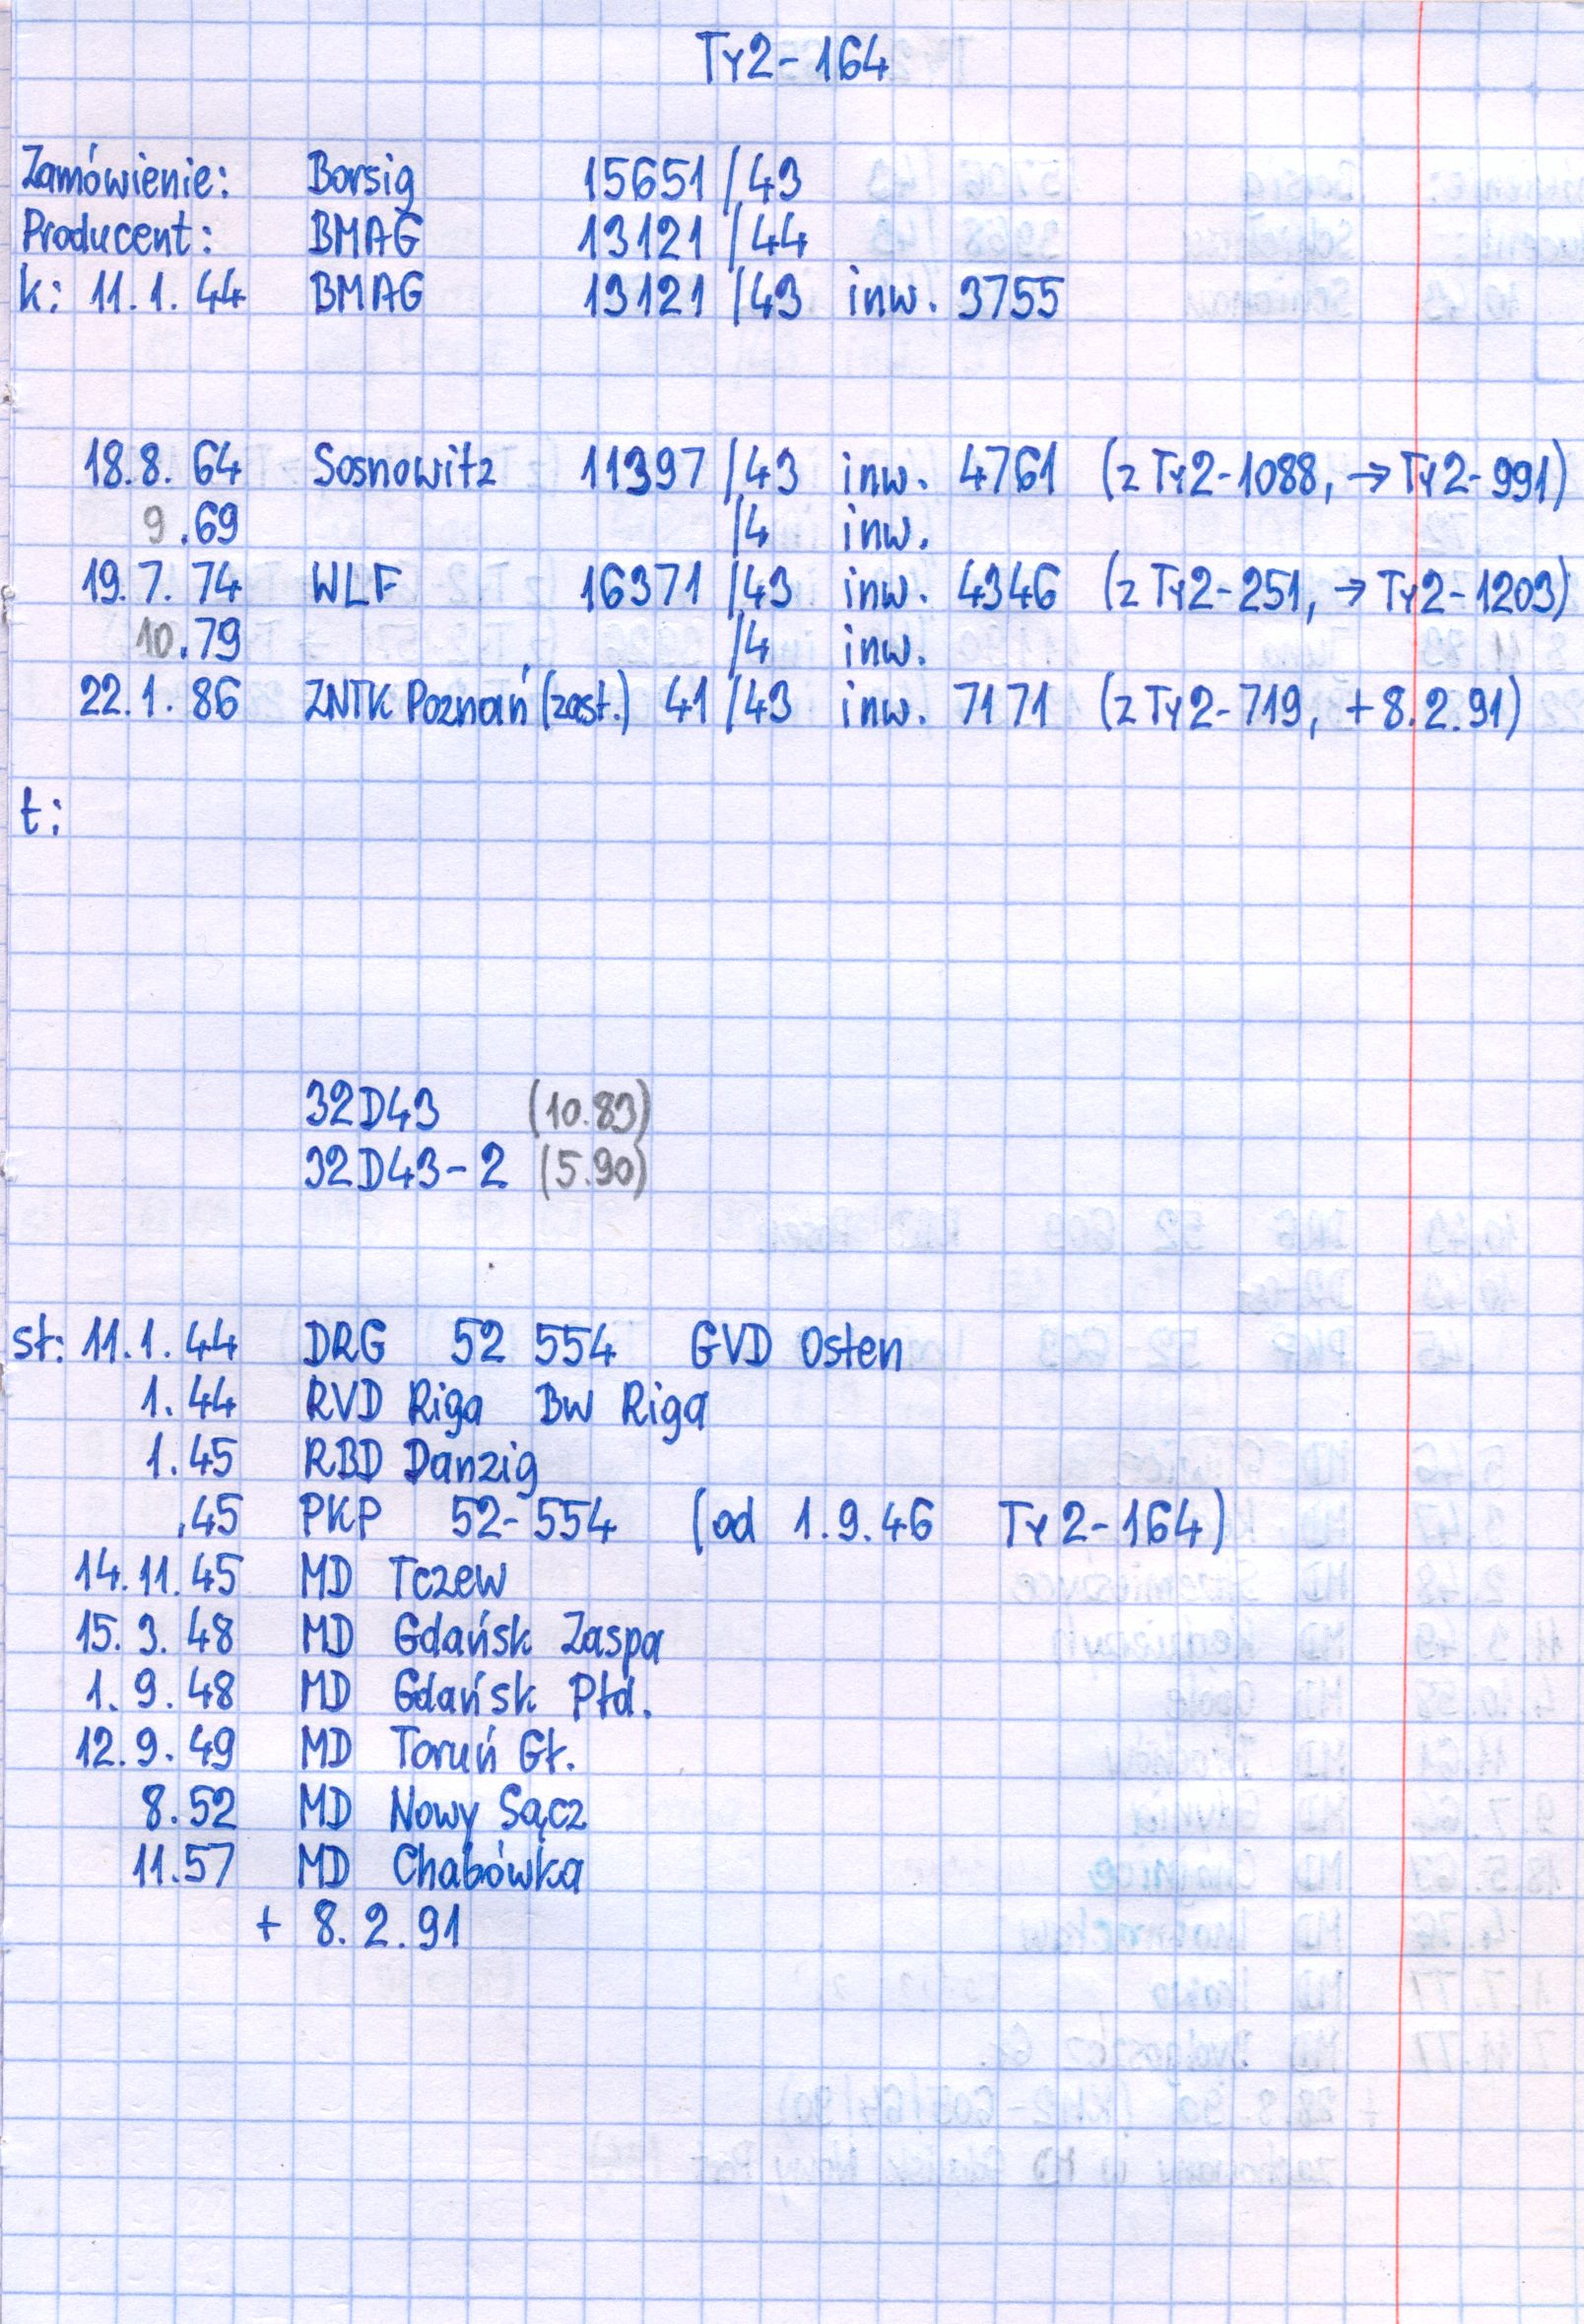 Ty2-164
Zamówienie: Borsig 15651/43
Producent: BMAG 13121/44
k: 11.1.44 BMAG 13121/43 inw. 3755
18.8.64 Sosnowitz 11397/43 inw. 4761 (z Ty2-1088, → Ty2-991)
9.69 /4 inw.
19.7.74 WLF 16371/43 inw. 4346 (z Ty2-251, → Ty2-1203)
10.79 /4 inw.
22.1.86 ZNTK Poznań (zast.) 41/43 inw. 7171 (z Ty2-719, + 8.2.91)
t:
32D43 (10.83)
32D43-2 (5.90)
st: 11.1.44 DRG 52 554 GVD Osten
1.44 RVD Riga Bw Riga
1.45 RBD Danzig
.45 PKP 52-554 (od 1.9.46 Ty2-164)
14.11.45 MD Tczew
15.3.48 MD Gdańsk Zaspa
1.9.48 MD Gdańsk Płd.
12.9.49 MD Toruń Gł.
8.52 MD Nowy Sącz
11.57 MD Chabówka
+ 8.2.91